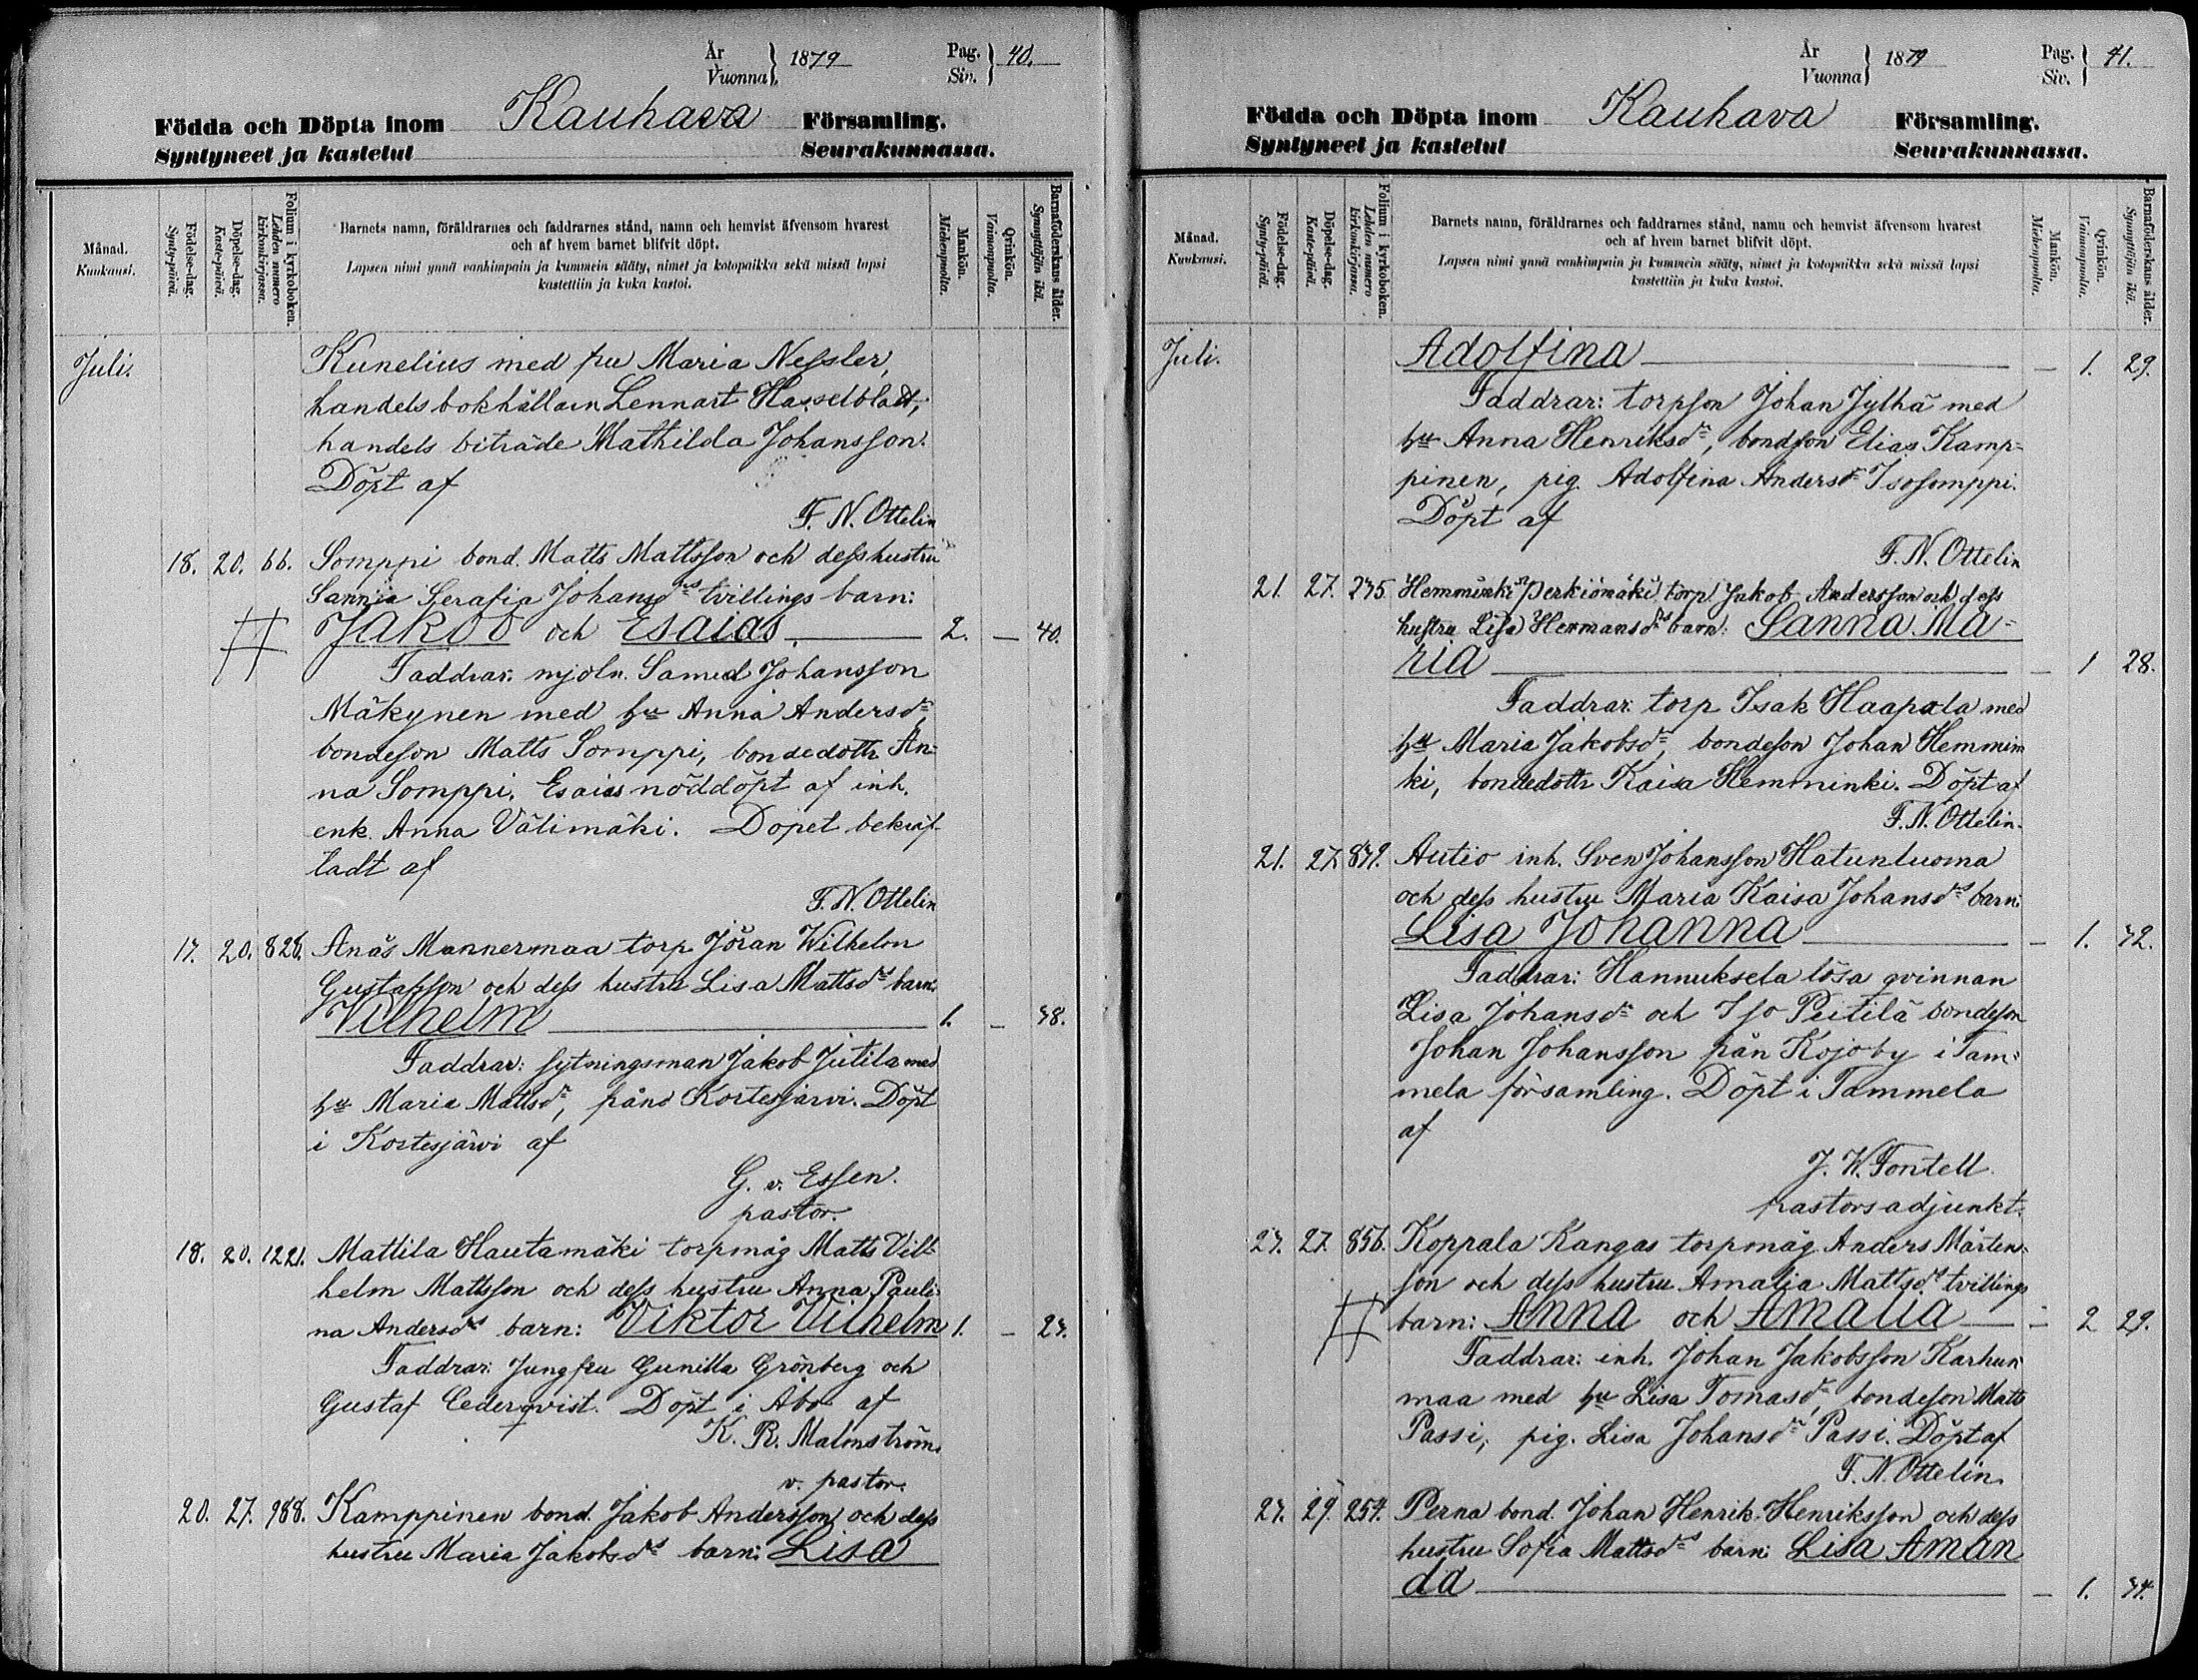 År
Vuonna
1879
Pag.
Siv.
40.
Födda och Döpta inom Kauhava Församling.
Syntyneet ja kastetut Seurakunnassa.
Månad.
Kuukausi.
Födelse-dag.
Synty-päivä.
Döpelse-dag.
Kaste-päivä.
Folium i kyrkoboken.
Lehden numero kirkonkirjassa.
Barnets namn, föräldrarnes och faddrarnes stånd, namn och hemvist äfvensom hvarest
och af hvem barnet blifvit döpt.
Lapsen nimi ynnä vanhimpain ja kummein sääty, nimet ja kotopaikka sekä missä lapsi
kastettiin ja kuka kastoi.
Mankön.
Miehenpuolta.
Qvinkön.
Vaimonpuolta.
Barnaföderskans ålder.
Synnyttäjän ikä.
Juli.
Kunelius med fru Maria Nessler,
handelsbokhållarn Lennart Hasselbladt,
handels biträde Mathilda Johansson.
Döpt af
F. N. Ottelin
18. 20. 66. Somppi bond. Matts Mattsson och dess hustru
Sanna Serafia Johansdrs tvillings barn:
Jakob och Esaias 2. — 40.
Faddrar: mjöln. Samuel Johansson
Mäkynen med hu Anna Andersdr,
bondeson Matts Somppi, bondedottr An-
na Somppi. Esaias nöddöpt af inh.
enk. Anna Välimäki. Döpet bekräf-
tadt af
F. N. Ottelin
17. 20. 828. Anäs Mannermaa torp. Jöran Wilhelm
Gustafsson och dess hustru Lisa Mattsdrs barn:
Vilhelm 1. — 38.
Faddrar: sytningsman Jakob Jutila med
hu Maria Mattsdr, från Kortesjärvi. Döpt
i Kortesjärvi af
G. v. Essen.
pastor.
18. 20. 1221. Mattila Hautamäki torpmåg Matts Vil-
helm Mattsson och dess hustru Anna Pauli-
na Andersdrs barn: Viktor Vilhelm 1. — 23.
Faddrar: Jungfru Gunilla Grönberg och
Gustaf Cederqvist. Döpt i Åbo af
K. R. Malmström.
v. pastor.
20. 27. 988. Kamppinen bond. Jakob Andersson och dess
hustru Maria Jakobsdrs barn: Lisa
År
Vuonna
1879
Pag.
Siv.
41.
Födda och Döpta inom Kauhava Församling.
Syntyneet ja kastetut Seurakunnassa.
Månad.
Kuukausi.
Födelse-dag.
Synty-päivä.
Döpelse-dag.
Kaste-päivä.
Folium i kyrkoboken.
Lehden numero kirkonkirjassa.
Barnets namn, föräldrarnes och faddrarnes stånd, namn och hemvist äfvensom hvarest
och af hvem barnet blifvit döpt.
Lapsen nimi ynnä vanhimpain ja kummein sääty, nimet ja kotopaikka sekä missä lapsi
kastettiin ja kuka kastoi.
Mankön.
Miehenpuolta.
Qvinkön.
Vaimonpuolta.
Barnaföderskans ålder.
Synnyttäjän ikä.
Juli.
Adolfina — 1. 29.
Faddrar: torpson Johan Jylhä med
hu Anna Henriksdr, bondson Elias Kamp-
pinen, pig. Adolfina Andersdr Isosomppi.
Döpt af
F. N. Ottelin
21. 27. 235. Hemminki Perkiömäki torp. Jakob Andersson och dess
hustru Lisa Hermansdrs barn: Sanna Ma-
ria — 1 28.
Faddrar: torp Isak Haapala med
hu Maria Jakobsdr, bondeson Johan Hemmin
ki, bondedottr Kaisa Hemminki. Döpt af
F. N. Ottelin.
21. 27. 839. Autio inh. Sven Johansson Hatunluoma
och dess hustru Maria Kaisa Johansdrs barn:
Lisa Johanna — 1. 32.
Faddrar: Hannuksela lösa qvinnan
Lisa Johansdr och Iso Peitilä bondeson
Johan Johansson från Kojoby i Tam-
mela församling. Döpt i Tammela
af
J. W. Fontell
pastorsadjunkt.
23. 27. 856. Koppala Kangas torpmåg Anders Mårtens-
son och dess hustru Amalia Mattsdrs tvillings
barn: Anna och Amalia — 2 29.
Faddrar: inh. Johan Jakobsson Karhun-
maa med hu Lisa Tomasdr, bondeson Matts
Passi, pig. Lisa Johansdr Passi. Döpt af
F. N. Ottelin.
23. 29. 254. Perna bond. Johan Henrik Henriksson och dess
hustru Sofia Mattsdrs barn: Lisa Aman
da — 1. 34.